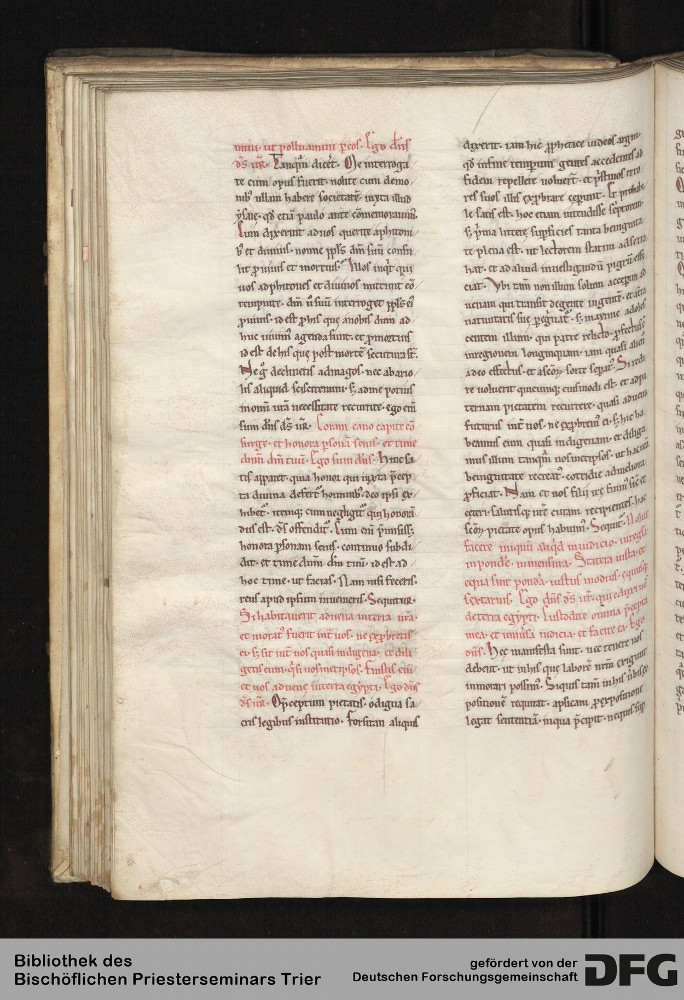 mini. ut polluamini ꝑ eos. Ego dn̄s
ds̄ ur̄. Tanqm̄ dicet. Me interroga
te cum opus fuerit. nolite cum demo
nib; ullam habere societatē. iuxta illud
ysaie. qd etiā paulo ante cōmemorauim.
Cum dixerint ad uos querite a phitoni
b; et diuinis. nonne ppls̄ dm̄ suū consu
lit ꝓ uiuis et mortuis. Illos inqt qui
uos ad phitones et diuinos mittunt cō
tempnite. dm̄ ur̄m suū interroget ppls̄ ei
ꝓ uiuis. id est ꝓ his que a nobis dum ad
huc uiuim agenda sunt. et ꝓ mortuis
id est de his que post mortē secutura st̄.
Ne g declinetis ad magos. nec ab ario
lis aliquid sciscitemini. s; ad me potius
in omi ura necessitate recurrite. ego em̄
sum dn̄s ds̄ ur̄. Coram cano capite cō
surge. et honora psonā senis. et time
dnm̄ dm̄ tuū. Ego sum dn̄s. Hinc sa
tis apparet. quia honor qui iuxta p̄cep
ta diuina defert hominib; deo ipsi ex
hibet. itemq; cum negligit qui honorā
dus est. ds̄ offendit. Cum em̄ p̄misiss;
honora psonam senis. continuo subdi
dit. et time dnm̄ dm̄ tuū. id est ad
hoc time. ut facias. Nam nisi feceris.
reus apud ipsum inueneris. Sequitur.
Si habitauerit aduena in terra ura
et morat fuerit int uos. ne exprobretis
ei. s; sit int uos quasi indigena. et dili
getis eum. qsi uosmetipsos. Fuistis em̄
et uos aduene in terra egypti. Ego dn̄s
ds̄ ur̄. O p̄ceptum pietatis. o digna sa
cris legibus institutio. Forsitan aliquis
dixerit. iam hic ꝓphetice iudeos argui.
qd in fine temporum gentes accedentes ad
fidem repellere uoluert. et pstinos erro
res suos illis exprobrare ceperunt. Et probabi
le satis est. hoc etiam intendisse scptorem.
s; prima littere superficies tanta benignita
te plena est. ut lectorem statim ad se tra
hat. et ad aliud inuestigandū pigrū effi
ciat. Vbi tam non illum solum accepim ad
uenam qui transit de gente in gentē. et extra
natiuitatis sue pegnat. s; maxime adoles
centem illum. qui patre relicto. ꝓfectus
in regionem longinquam. iam quasi alien
a deo effectus. et a scoꝝ sorte sepat. Si redi
re uoluerit quicumq; eiusmodi est. et ad pa
ternam pietatem recurrere. quasi aduena
futurus int nos. ne exprobrem ei. s; hic ha
beamus eum quasi indigenam. et diliga
mus illum tanqm̄ nosmetipsos. ut hac nra
benignitate recreat. cottidie ad meliora
ꝓficiat. Nam et nos filij ire fuim sic et
ceteri. salutisq; nre curam recipientes. hac
scōꝝ pietate opus habuim. Sequit. Nolite
facere iniquū aliqd in iudicio. in regula
in pondere. in mensura. Statera iusta. et
equa sint pondera. iustus modius. equusq;
sextarius. Ego dn̄s ds̄ ur̄. qui eduxi uos
de terra egypti. Custodite omnia p̄cepta
mea. et uniuersa iudicia. et facite ea. Ego
dn̄s. Hec manifesta sunt. nec tenere nos
debent. ut in his que laborē nrm̄ exigunt
inmorari possim. Siquis tam in his nrm ex
positionē requirat. aplicam p expositione
legat sententiā. in qua p̄cipit. nequis sup
Bibliothek des
Bischöflichen Priesterseminars Trier
gefördert von der
Deutschen Forschungsgemeinschaft
DFG